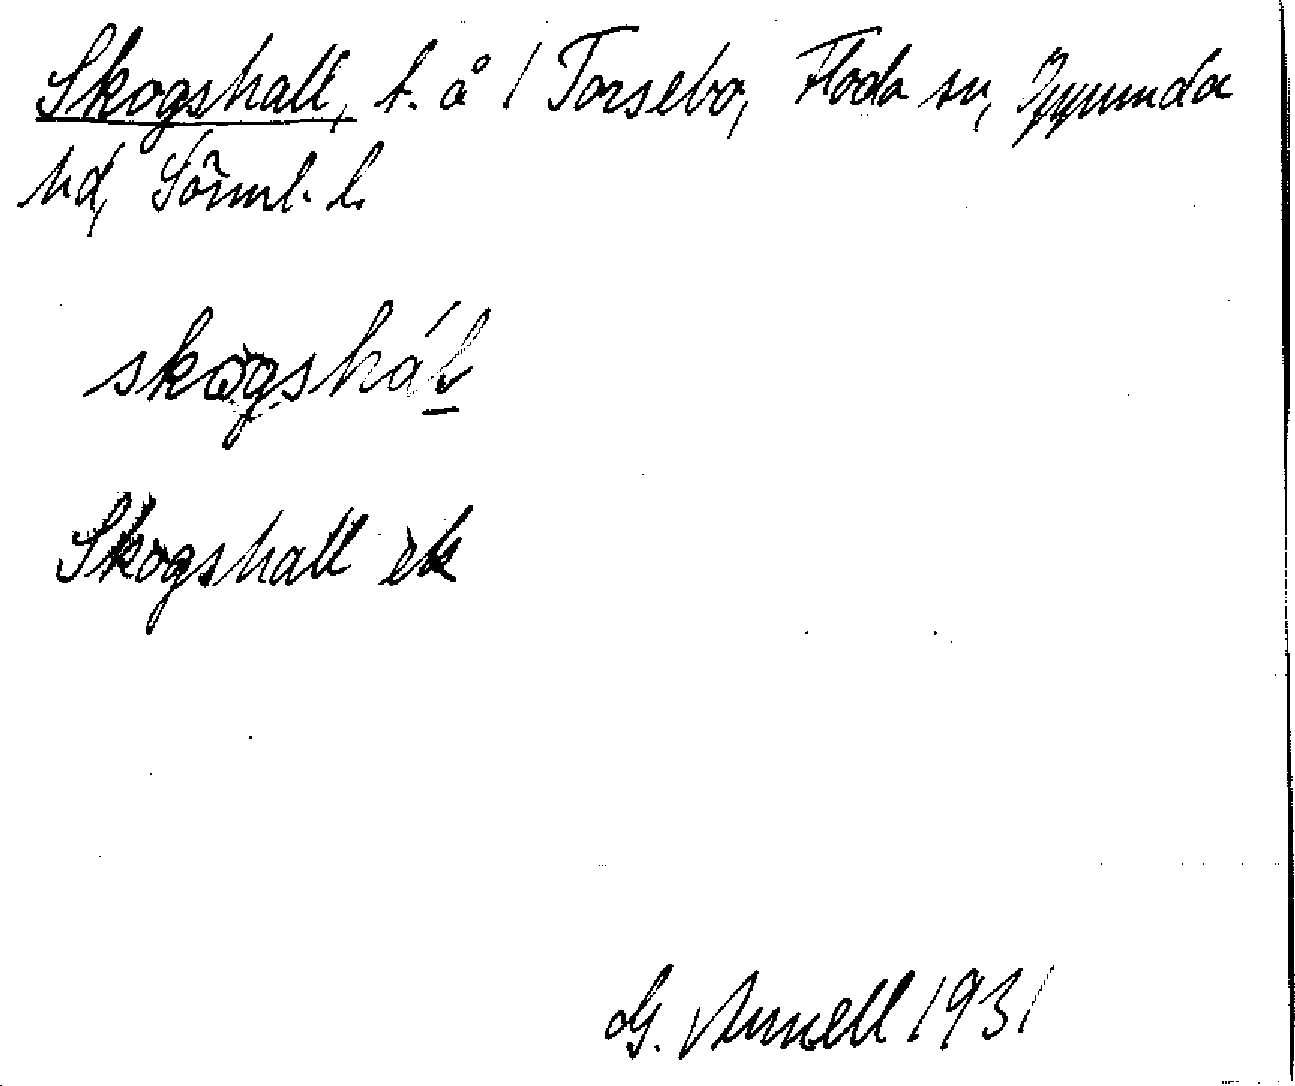 Skogshall, t. å 1 Torsebo, Floda sn, Oppunda
hd, Sörml. l.
skogshál
Skogshall ek
G. Annell 1931